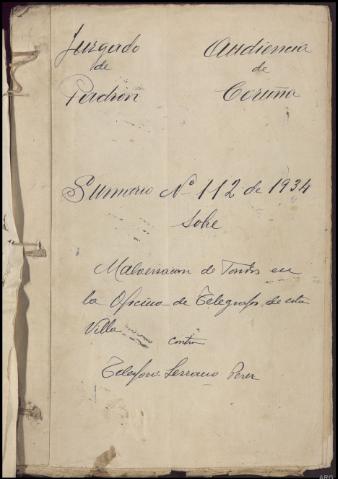 Juzgado Audiencia
de de
Padrón Coruña
Sumario Nº 112 de 1934
sobre
Malversacion de fondos en
la Oficina de Telegrafos de esta
Villa contra
Telesforo Serrano Perez